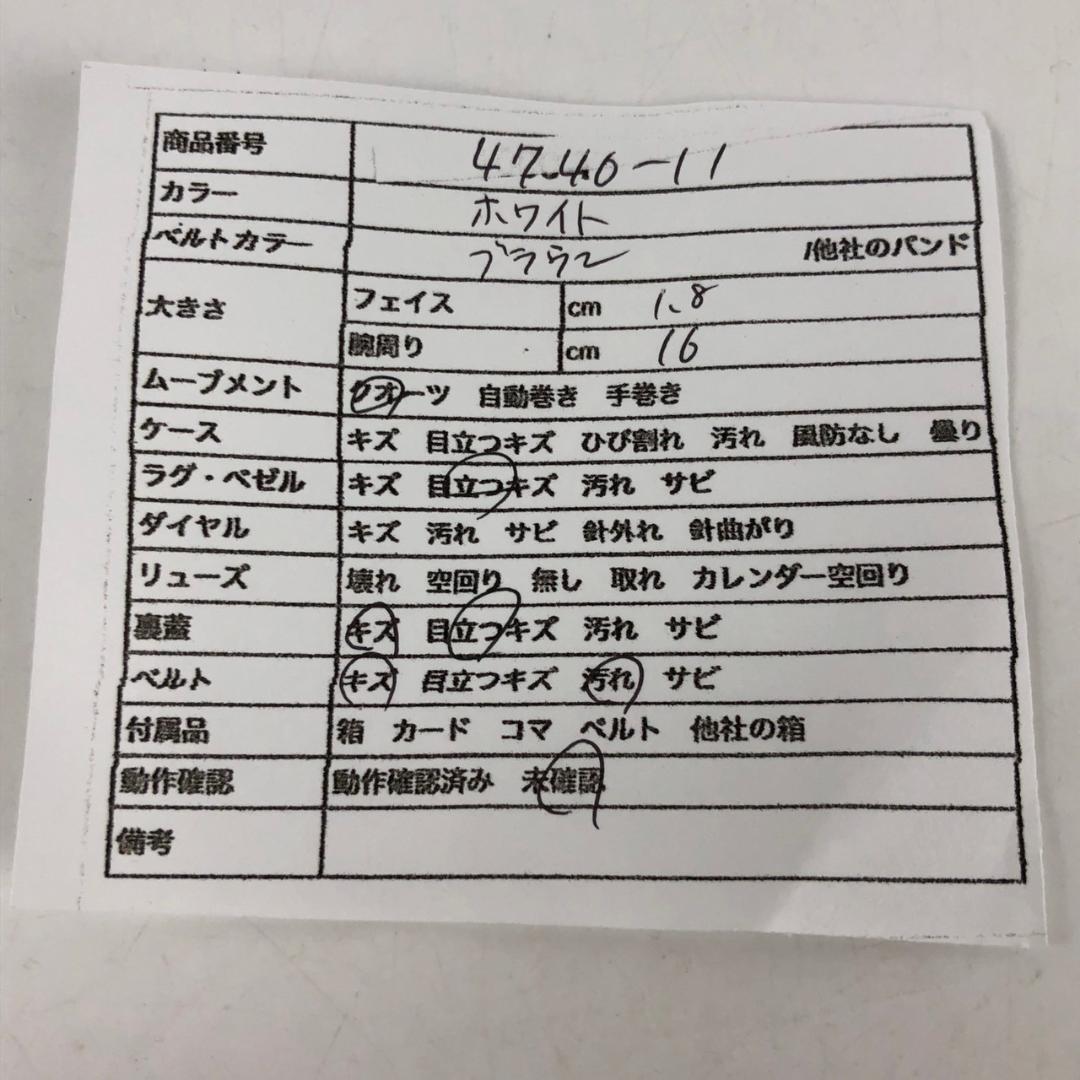 商品番号 4740-11
カラー ホワイト
ベルトカラー ブラウン /他社のバンド
大きさ フェイス cm 1.8
腕周り cm 16
ムーブメント クオーツ 自動巻き 手巻き
ケース キズ 目立つキズ ひび割れ 汚れ 風防なし 曇り
ラグ・ベゼル キズ 目立つキズ 汚れ サビ
ダイヤル キズ 汚れ サビ 針外れ 針曲がり
リューズ 壊れ 空回り 無し 取れ カレンダー空回り
裏蓋 キズ 目立つキズ 汚れ サビ
ベルト キズ 目立つキズ 汚れ サビ
付属品 箱 カード コマ ベルト 他社の箱
動作確認 動作確認済み 未確認
備考